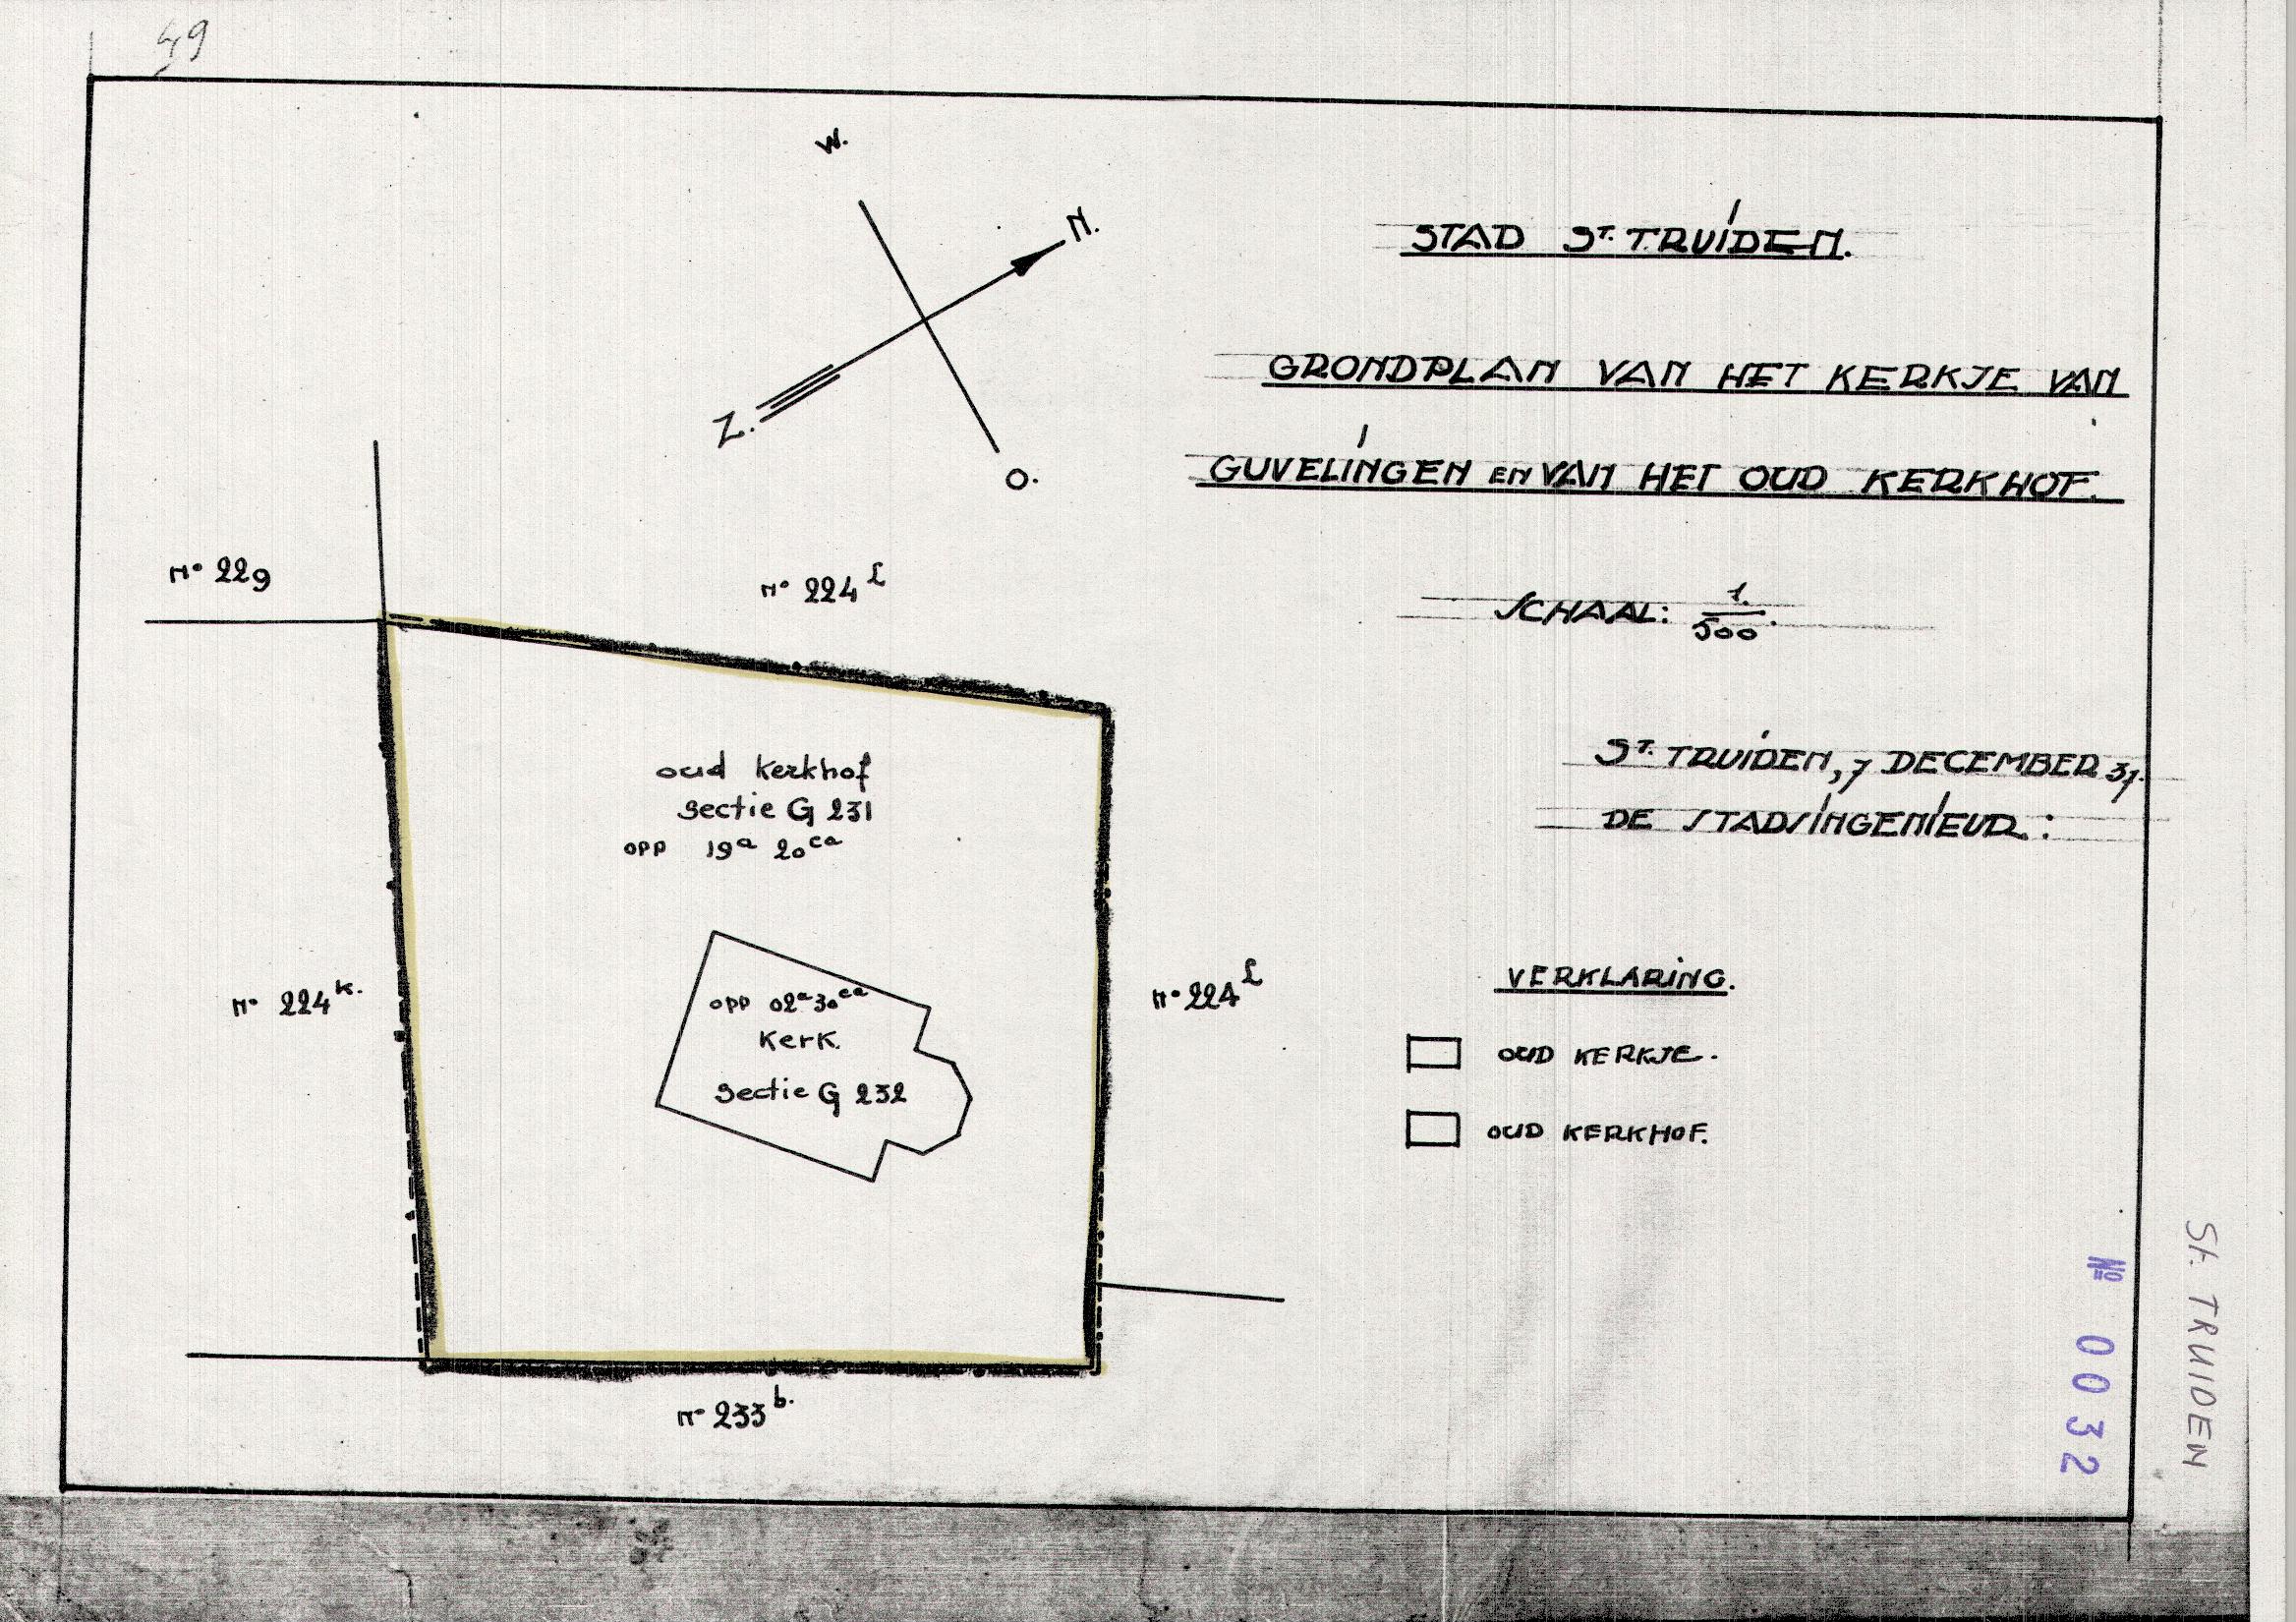 49
W.
N.
Z.
O.
STAD ST. TRUIDEN.
GRONDPLAN VAN HET KERKJE VAN
GUVELINGEN EN VAN HET OUD KERKHOF.
SCHAAL: 1/500.
ST. TRUIDEN, 7 DECEMBER 37.
DE STADSINGENIEUR:
N° 229
N° 224 L
oud kerkhof
Sectie G 231
opp 19a 20ca
opp 02a 30ca
Kerk.
Sectie G 232
N° 224 K.
N° 224 L
N° 233 b.
VERKLARING.
OUD KERKJE.
OUD KERKHOF.
Nº 0032
St. TRUIDEN